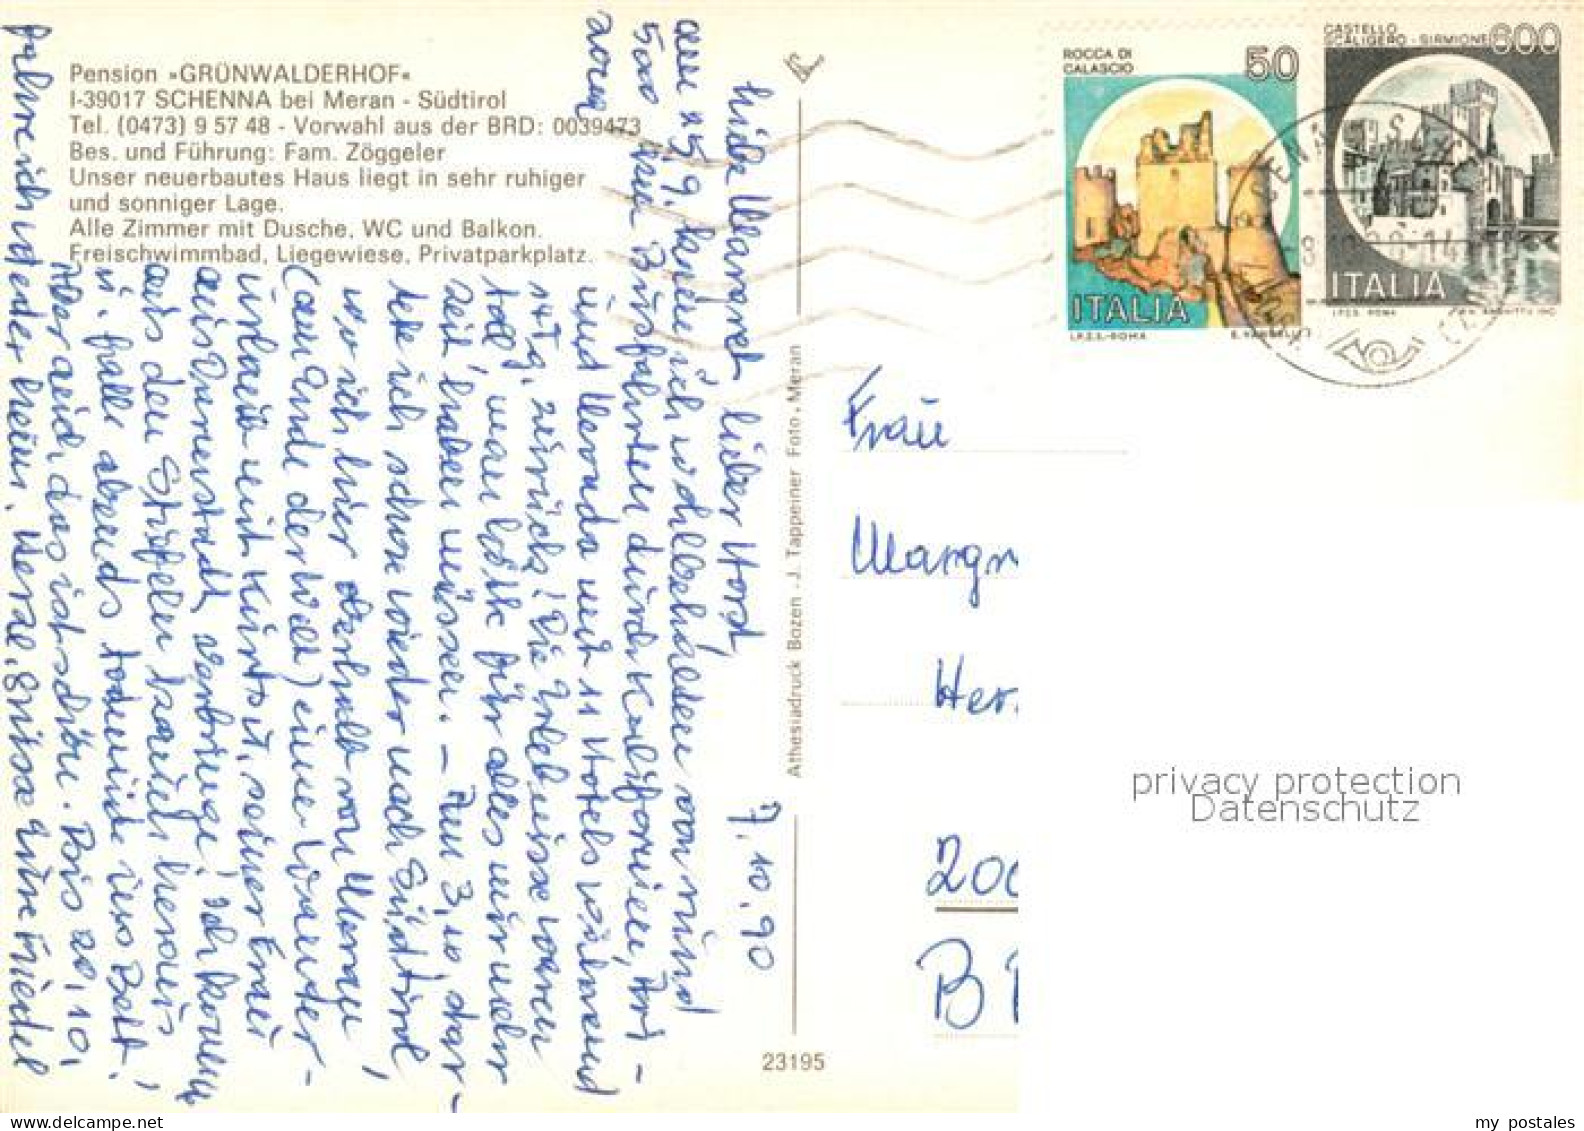 Pension »GRÜNWALDERHOF«
I-39017 SCHENNA bei Meran - Südtirol
Tel. (0473) 9 57 48 - Vorwahl aus der BRD: 0039473
Bes. und Führung: Fam. Zöggeler
Unser neuerbautes Haus liegt in sehr ruhiger
und sonniger Lage.
Alle Zimmer mit Dusche, WC und Balkon.
Freischwimmbad, Liegewiese, Privatparkplatz.
7.10.90
Liebe Margret, lieber Horst,
am 25.9. kehrte ich wohlbehalten von rund
5000 km Busfahrten durch Kalifornien,
Arizona
und Nevada mit 11 Hotels während
14 Tg. zurück! Die Erlebnisse waren
toll, man hätte für alles nur mehr
Zeit haben müssen. - Am 3.10. star-
tete ich schon wieder nach Südtirol,
wo ich hier oberhalb von Meran
(am Ende der Welt) einen Wander-
urlaub mit Kurt u. seiner Frau
aus Darmstadt verbringe! Ich komme
aus den Stiefeln kaum heraus
u. falle abends todmüde ins Bett!
Aber auch das ist schön. Bis 20.10.
fahre ich wieder heim. Herzl. Grüße Eure Friedel
Athesiadruck Bozen - J. Tappeiner Foto - Meran
23195
ROCCA DI
CALASCIO
50
ITALIA
I.P.Z.S. - ROMA
CASTELLO
SCALIGERO - SIRMIONE
600
ITALIA
I.P.Z.S. ROMA
Frau
Margr
Her
200
privacy protection
Datenschutz
my postales